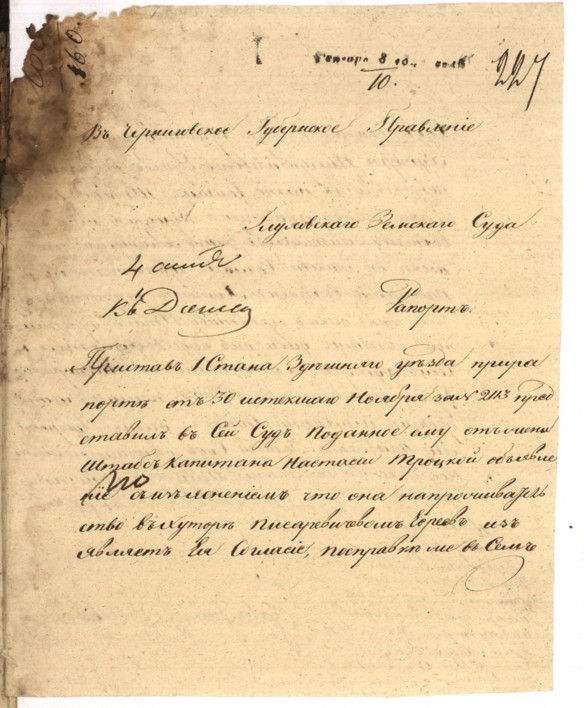 160.
Генваря 8
10.
227
Въ Черниговское Губернское Правленіе
Земскаго Суда
4
Къ Дѣлу
Рапортъ.
Приставъ 1 Стана Здѣшняго уѣзда при ра
портѣ отъ 30 истекшаго Ноября за № 2113 пред
ставилъ въ Сей Судъ поданное ему отъ жены
Штабсъ Капитана Настасіи Троцкой объявле
ніе что она на проживатель
ство въ хуторѣ Писаревичевомъ Евреевъ из
являетъ Ея Согласіе, по справкѣ же въ Семъ